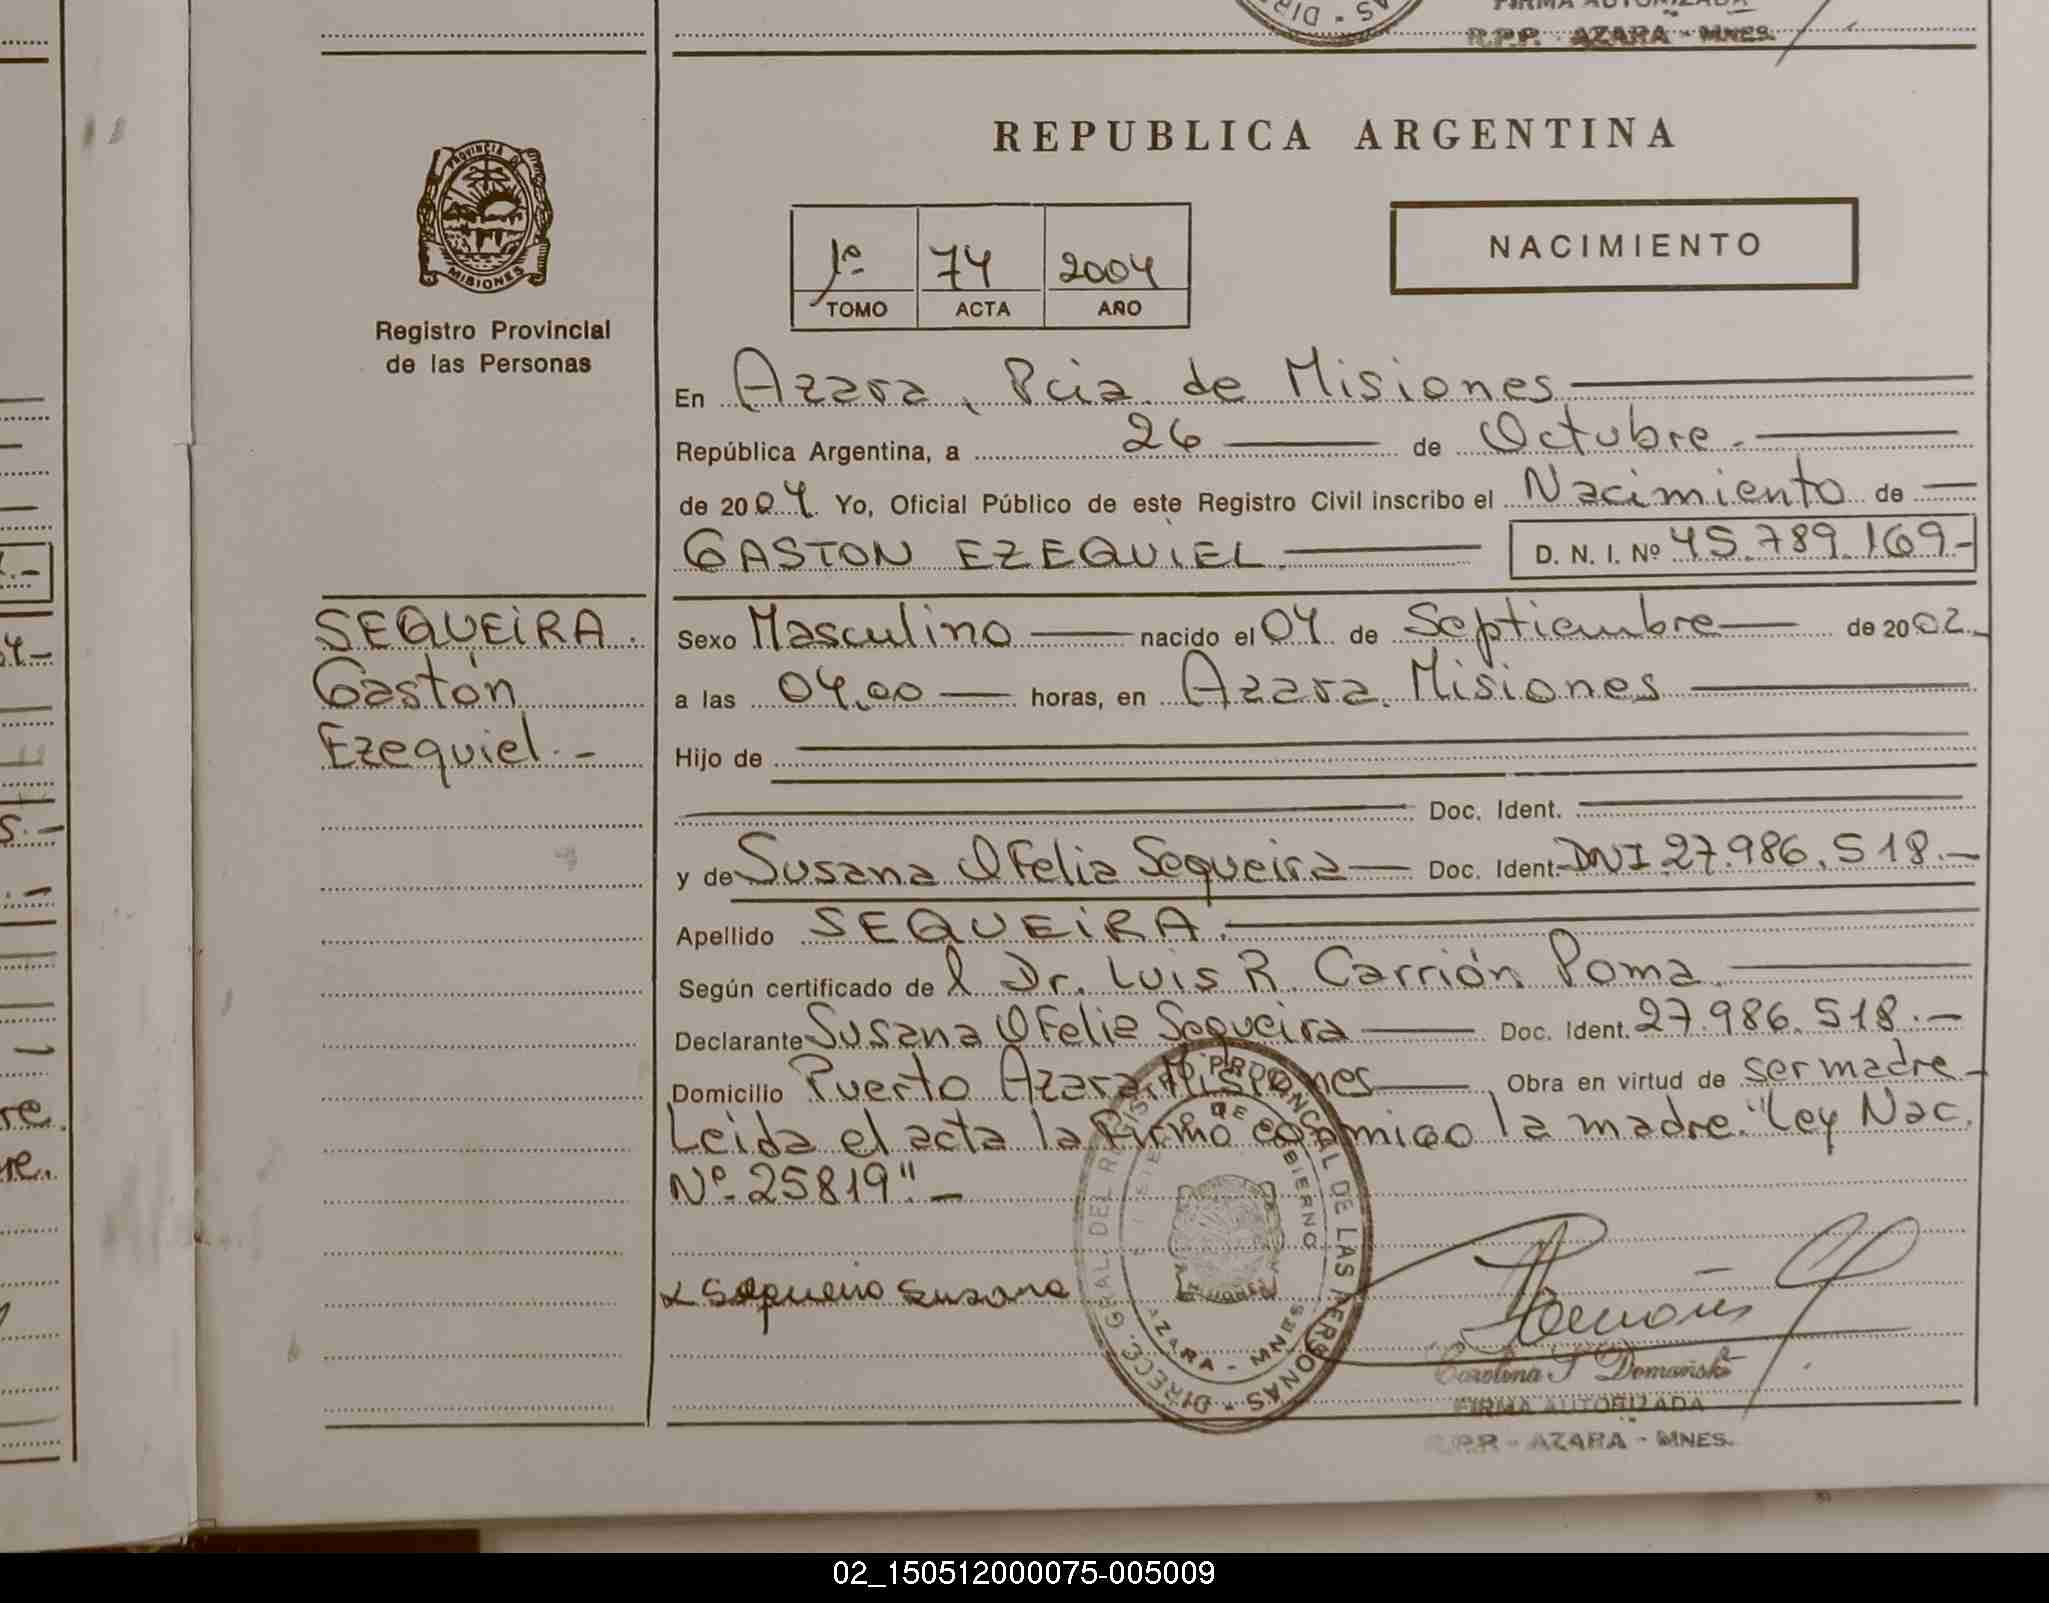 FIRMA AUTORIZADA
R.P.P. AZARA - MNES.
REPUBLICA ARGENTINA
PROVINCIA D
MISIONES
Registro Provincial
de las Personas
1º 74 2004
TOMO ACTA AÑO
NACIMIENTO
En Azara, Pcia de Misiones
República Argentina, a 26 de Octubre.-
de 2004. Yo, Oficial Público de este Registro Civil inscribo el Nacimiento de
GASTON EZEQUIEL. D. N. I. Nº 45.789.169-
SEQUEIRA.
Gastón
Ezequiel.-
Sexo Masculino nacido el 04 de Septiembre de 2002.
a las 04,00 horas, en Azara. Misiones
Hijo de
Doc. Ident.
y de Susana Ofelia Sequeira Doc. Ident. DNI 27.986.518.-
Apellido SEQUEIRA.
Según certificado del Dr. Luis R. Carrión Poma.
Declarante Susana Ofelia Sequeira Doc. Ident. 27.986.518.-
Domicilio Puerto Azara, Misiones Obra en virtud de ser madre-
Leida el acta la firmo conmigo la madre. "Ley Nac.
Nº 25819".-
x Sequeira Susana
AZARA - MNES
Carolina S Domański
FIRMA AUTORIZADA
R.P.P. - AZARA - MNES.
02_150512000075-005009